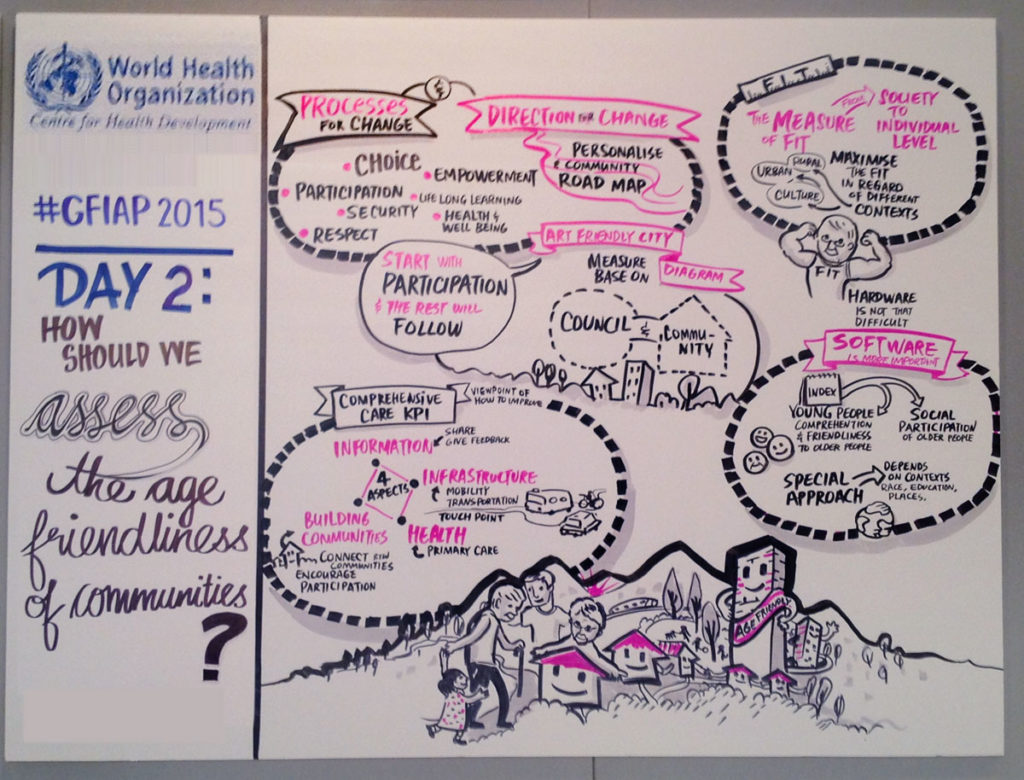 World Health
Organization
Centre for Health Development
#GFIAP 2015
DAY 2:
HOW
SHOULD WE
assess
the age
friendliness
of communities
?
PROCESSES
FOR CHANGE
&
DIRECTION FOR CHANGE
• CHOICE
• EMPOWERMENT
• PARTICIPATION
• LIFE LONG LEARNING
• SECURITY
• HEALTH &
WELL BEING
• RESPECT
PERSONALISE
& COMMUNITY
ROAD MAP
START WITH
PARTICIPATION
& THE REST WILL
FOLLOW
ART FRIENDLY CITY
MEASURE
BASE ON
DIAGRAM
COUNCIL
&
COMMU-
NITY
F.I.T.
THE MEASURE
OF FIT
FROM
SOCIETY
TO
INDIVIDUAL
LEVEL
RURAL
URBAN
CULTURE
MAXIMISE
THE FIT
IN REGARD
OF DIFFERENT
CONTEXTS
FIT
HARDWARE
IS NOT THAT
DIFFICULT
SOFTWARE
IS MORE IMPORTANT
INDEX
YOUNG PEOPLE
COMPREHENTION
& FRIENDLINESS
TO OLDER PEOPLE
SOCIAL
PARTICIPATION
OF OLDER PEOPLE
SPECIAL
APPROACH
DEPENDS
ON CONTEXTS
RACE, EDUCATION,
PLACES.
COMPREHENSIVE
CARE KPI
VIEWPOINT OF
HOW TO IMPROVE
INFORMATION
SHARE
GIVE FEEDBACK
4
ASPECTS
INFRASTRUCTURE
MOBILITY
TRANSPORTATION
TOUCH POINT
BUILDING
COMMUNITIES
CONNECT BTW
COMMUNITIES
ENCOURAGE
PARTICIPATION
HEALTH
PRIMARY CARE
AGE FRIENDLY